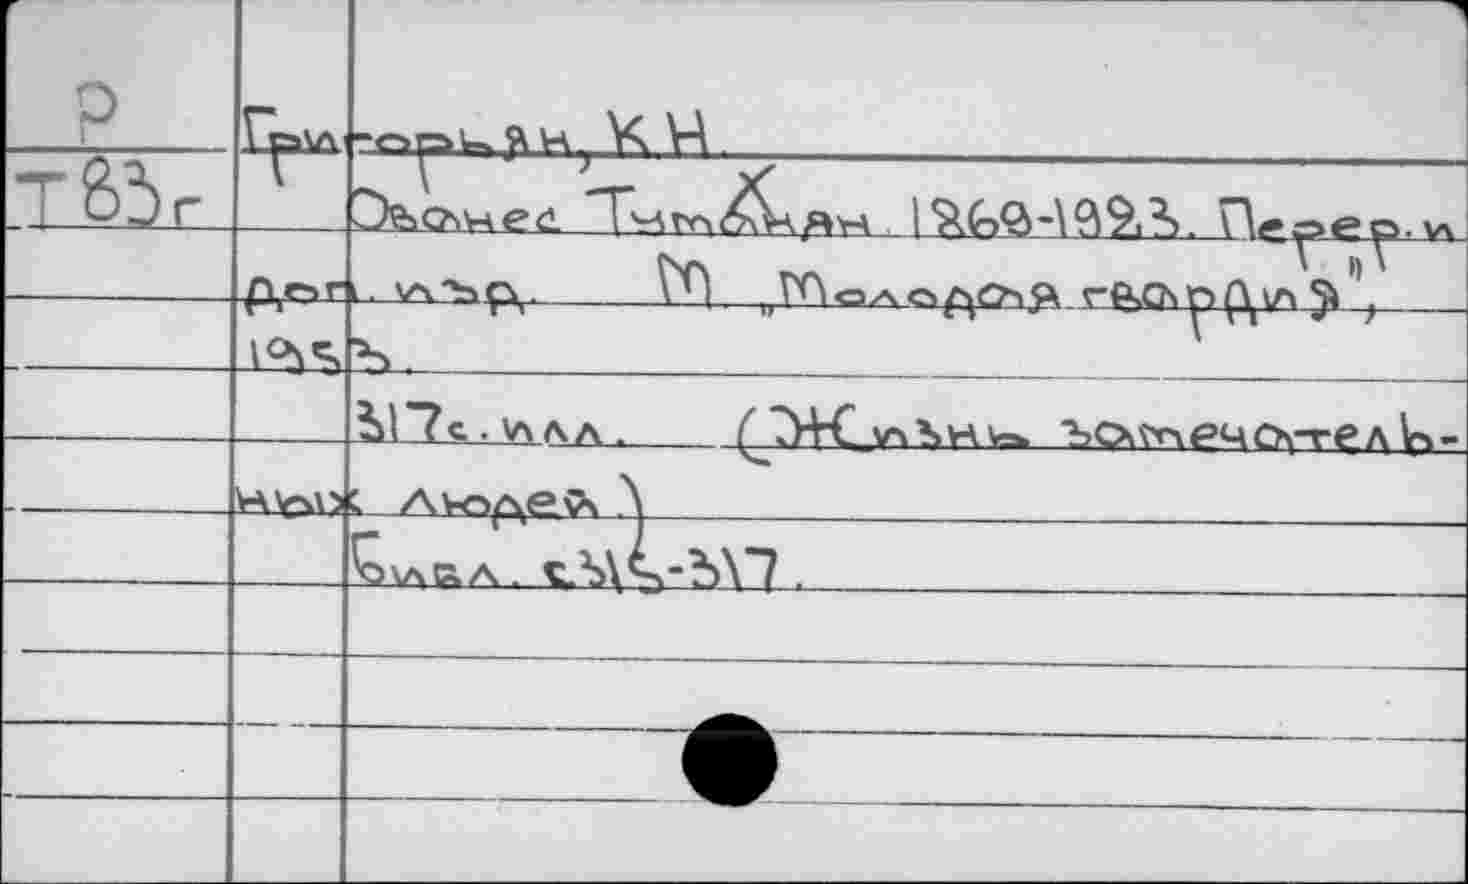 Р
Григорьян, К.Н.
Т83г
Ованес Туманян. 1869-1923. Перер. и
доп. изд. М. „Молодая гвардия",
1953.
317с. илл. (Жизнь замечатель-
ных людей.)
Библ. с.315-317.